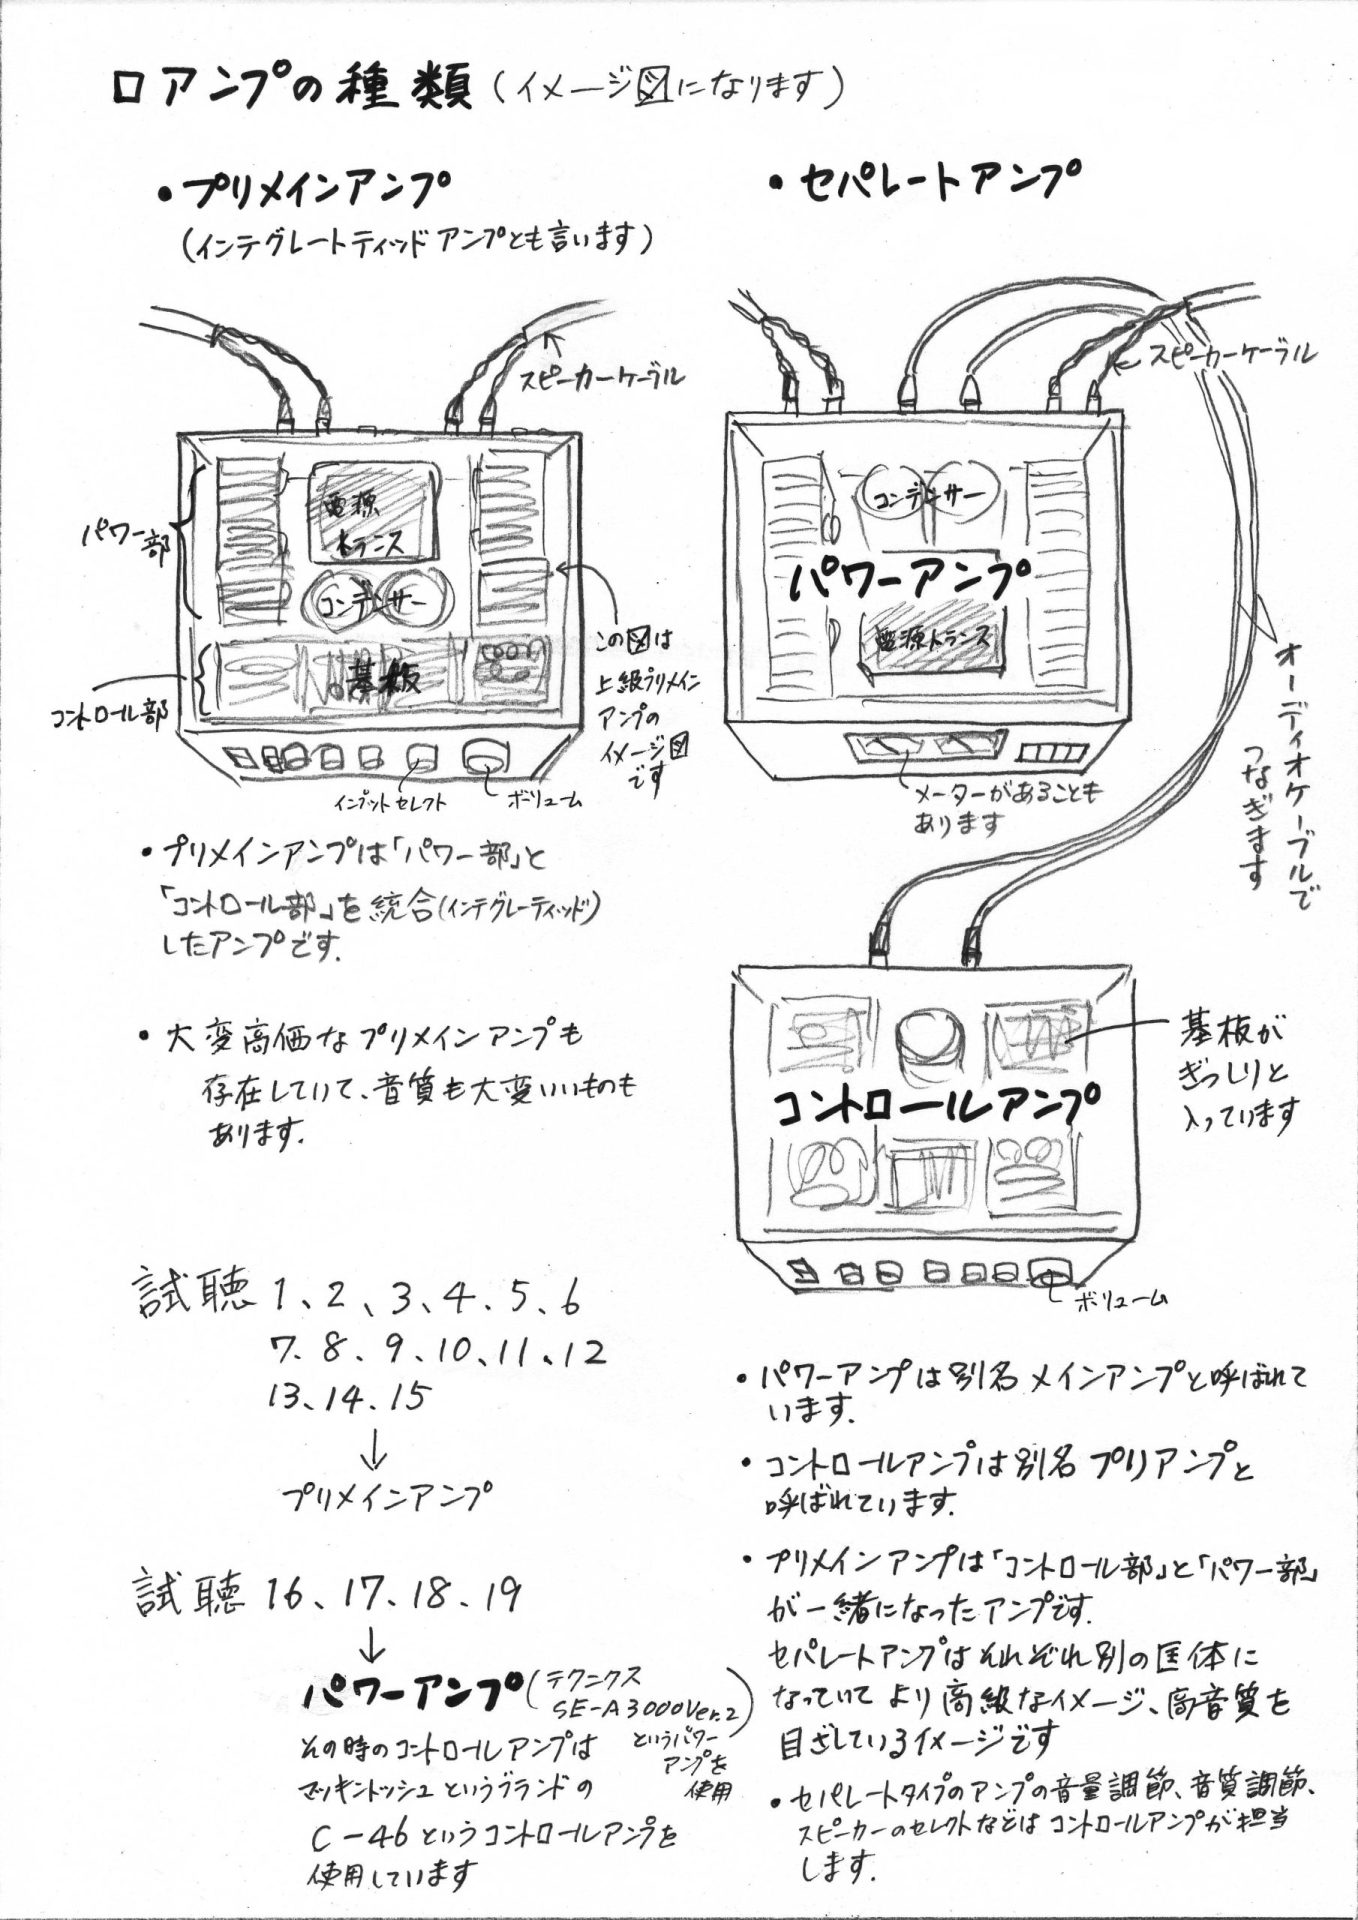 ロ アンプの種類(イメージ図になります)
・プリメインアンプ
(インテグレートティッドアンプとも言います)
スピーカーケーブル
パワー部
電源
トランス
コンデンサー
基板
コントロール部
この図は
上級プリメイン
アンプの
イメージ図
です
インプットセレクト
ボリューム
・プリメインアンプは「パワー部」と
「コントロール部」を統合(インテグレーティッド)
したアンプです.
・大変高価なプリメインアンプも
存在していて、音質も大変いいものも
あります.
試聴 1、2、3、4、5、6
7、8、9、10、11、12
13、14、15
↓
プリメインアンプ
試聴 16、17、18、19
↓
パワーアンプ(テクニクス
SE-A3000Ver.2)
というパワー
アンプを
使用
その時のコントロールアンプは
マッキントッシュというブランドの
C-46というコントロールアンプを
使用しています
・セパレートアンプ
スピーカーケーブル
コンデンサー
パワーアンプ
電源トランス
メーターがあることも
あります
オーディオケーブルで
つなぎます
コントロールアンプ
基板が
ぎっしりと
入っています
ボリューム
・パワーアンプは別名メインアンプと呼ばれて
います.
・コントロールアンプは別名プリアンプと
呼ばれています.
・プリメインアンプは「コントロール部」と「パワー部」
が一緒になったアンプです.
セパレートアンプはそれぞれ別の匡体に
なっていてより高級なイメージ、高音質を
目ざしているイメージです
・セパレートタイプのアンプの音量調節、音質調節、
スピーカーのセレクトなどはコントロールアンプが担当
します.